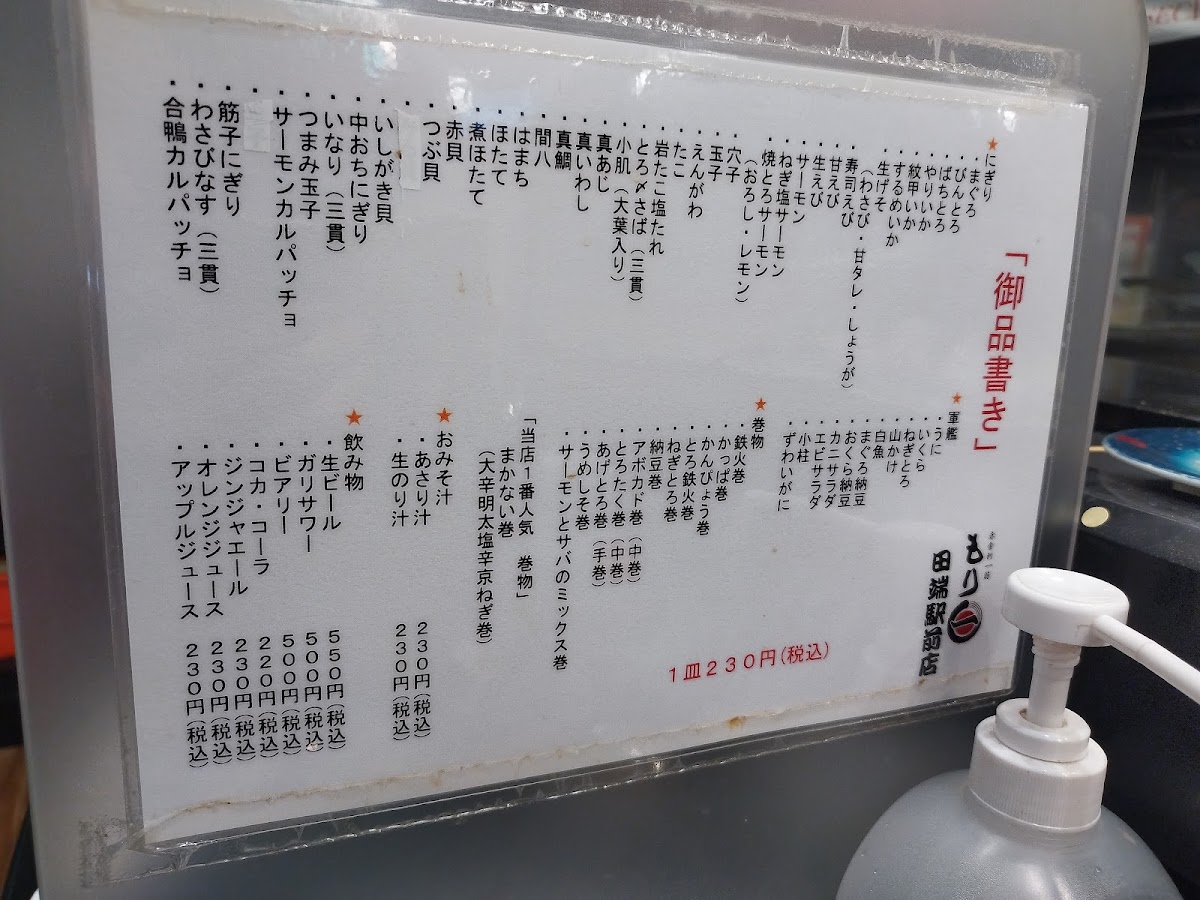 「御品書き」
★にぎり
・まぐろ
・びんとろ
・ばちとろ
・やりいか
・紋甲いか
・するめいか
・生げそ
（わさび・甘タレ・しょうが）
・寿司えび
・甘えび
・生えび
・サーモン
・ねぎ塩サーモン
・焼とろサーモン
（おろし・レモン）
・穴子
・玉子
・えんがわ
・たこ
・岩たこ塩たれ
・とろ〆さば（三貫）
・小肌（大葉入り）
・真あじ
・真いわし
・真鯛
・間八
・はまち
・ほたて
・煮ほたて
・赤貝
・つぶ貝
・
・いしがき貝
・中おちにぎり
・いなり（三貫）
・つまみ玉子
・サーモンカルパッチョ
・
・筋子にぎり
・わさびなす（三貫）
・合鴨カルパッチョ
★軍艦
・うに
・いくら
・ねぎとろ
・山かけ
・白魚
・まぐろ納豆
・おくら納豆
・カニサラダ
・エビサラダ
・小柱
・ずわいがに
★巻物
・鉄火巻
・かっぱ巻
・かんぴょう巻
・とろ鉄火巻
・ねぎとろ巻
・納豆巻
・アボカド巻（中巻）
・とろたく巻（中巻）
・あげとろ巻（手巻）
・うめしそ巻
・サーモンとサバのミックス巻
「当店１番人気　巻物」
まかない巻
（大辛明太塩辛京ねぎ巻）
★おみそ汁
・あさり汁 ２３０円（税込）
・生のり汁 ２３０円（税込）
★飲み物
・生ビール ５５０円（税込）
・ガリサワー ５００円（税込）
・ビアリー ５００円（税込）
・コカ・コーラ ２２０円（税込）
・ジンジャエール ２３０円（税込）
・オレンジジュース ２３０円（税込）
・アップルジュース ２３０円（税込）
もり一
田端駅前店
１皿２３０円（税込）